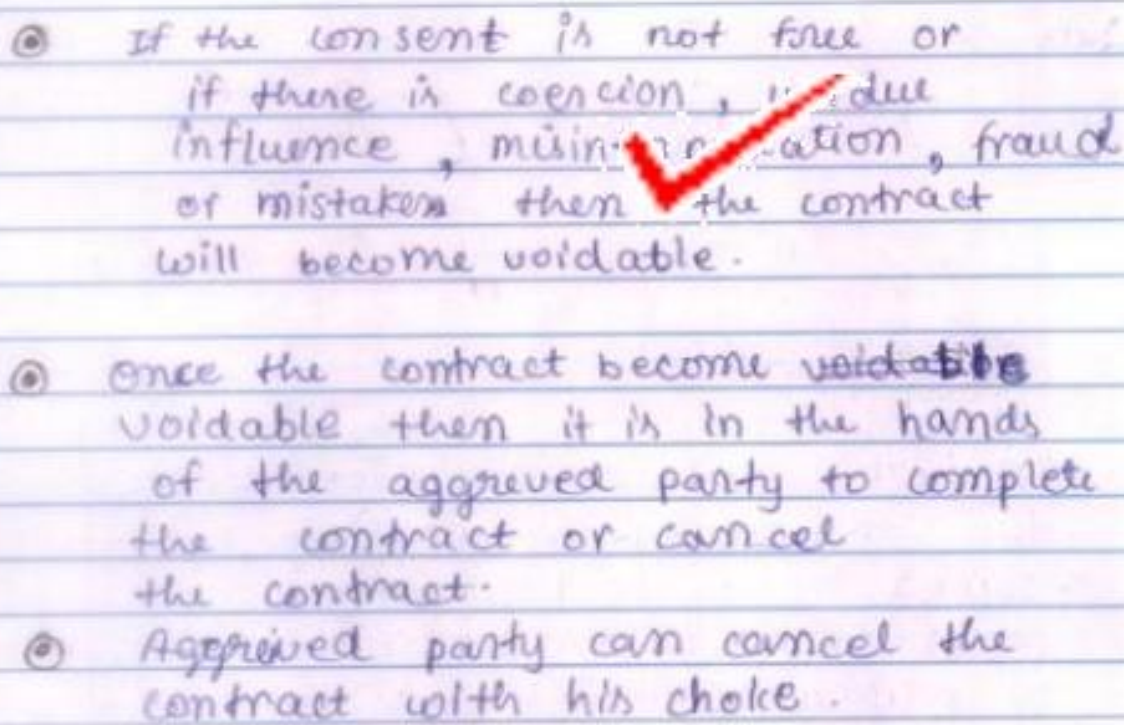 If the consent is not free or
if there is coercion, undue
influence, , fraud
or mistaken then the contract
will become voidable.
Once the contract become voidable
voidable then it is in the hands
of the aggreved party to complete
the contract or cancel
the contract.
Aggreived party can cancel the
contract with his choke.